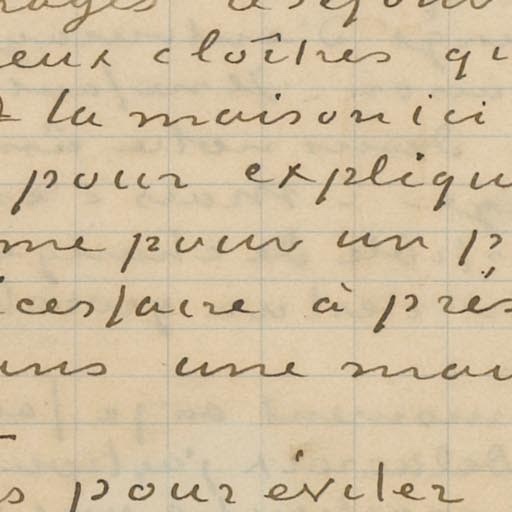 eux cloîtres qu
la maison ici
pour expliqu
me pour un p
cessaire à prés
ans une mai
s pour éviter